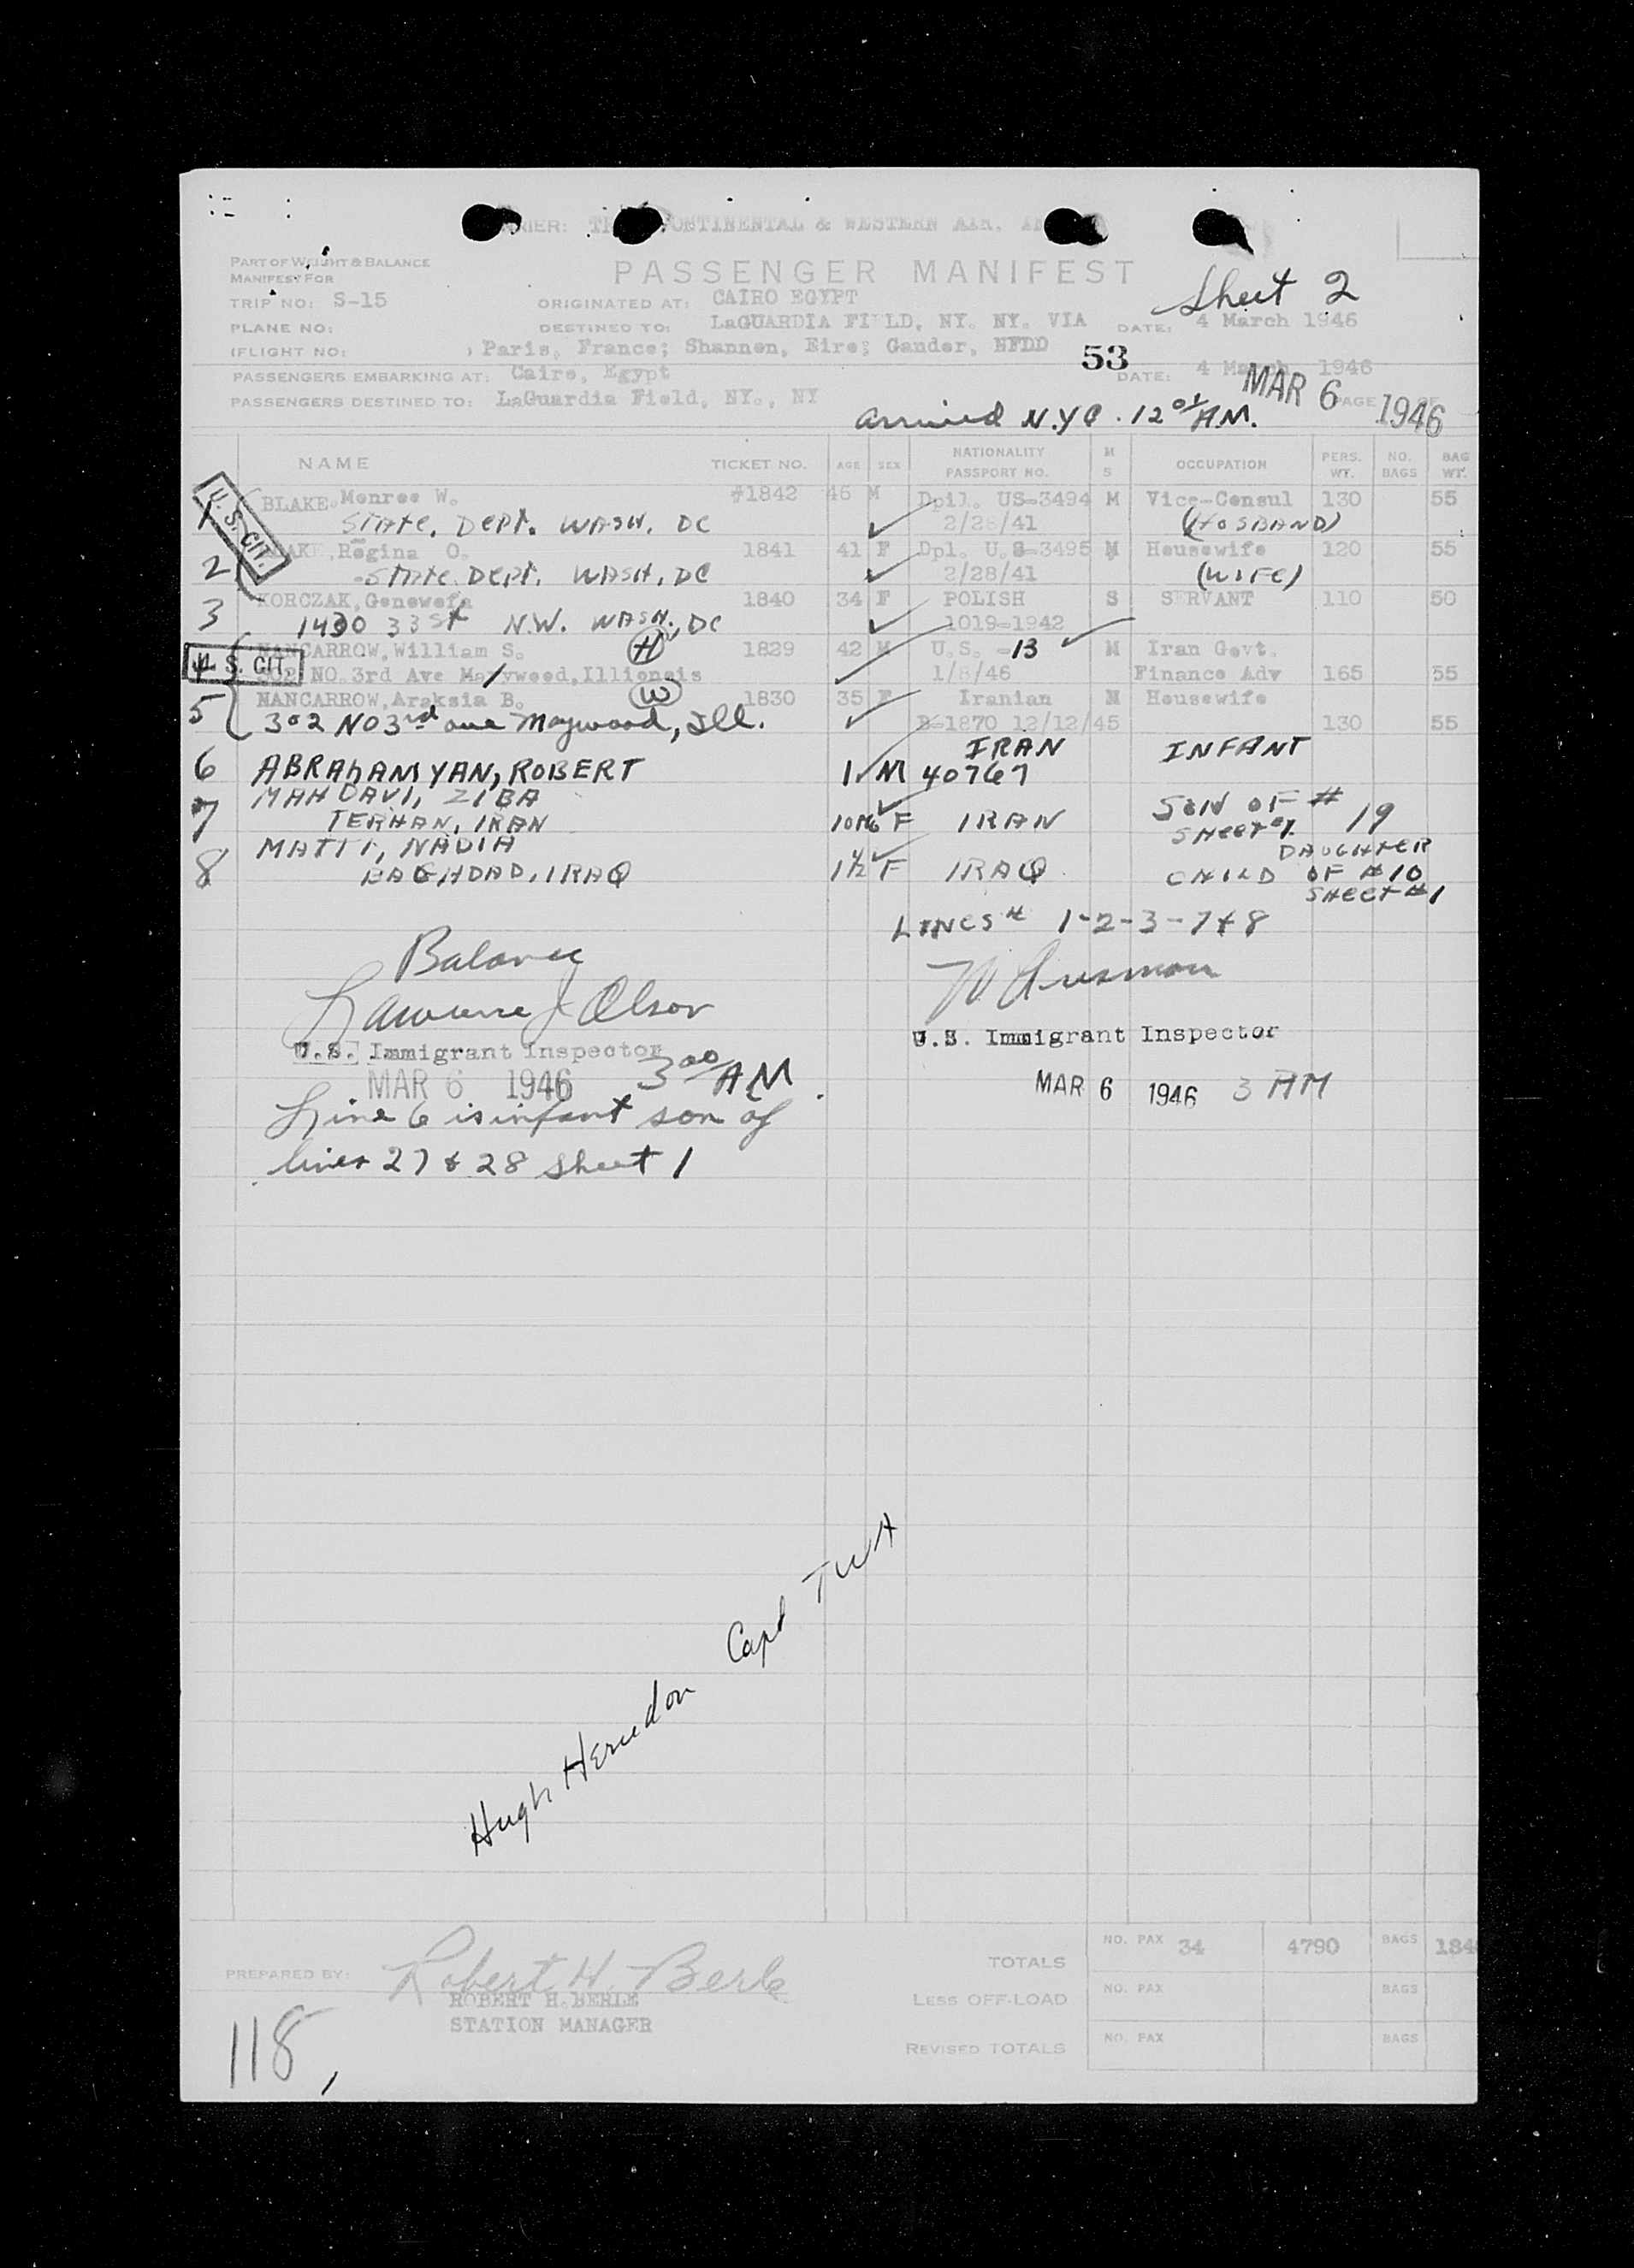 CARRIER: TRANSCONTINENTAL & WESTERN AIR,
PART OF WEIGHT & BALANCE
MANIFEST FOR
PASSENGER MANIFEST
Sheet 2
TRIP NO: S-15
ORIGINATED AT: CAIRO EGYPT
PLANE NO:
DESTINED TO: LaGUARDIA FIELD, NY. NY. VIA
DATE: 4 March 1946
(FLIGHT NO:
Paris, France; Shannon, Eire; Gander, NFDD
53
PASSENGERS EMBARKING AT: Cairo, Egypt
DATE: 4 March 1946
PASSENGERS DESTINED TO: LaGuardia Field, NY., NY
MAR 6 1946
PAGE OF
arrived N.Y.C. 12 01 AM.
NAME TICKET NO. AGE SEX NATIONALITY PASSPORT NO. M S OCCUPATION PERS. WT. NO. BAGS BAG WT.
U. S. CIT.
1 BLAKE, Monroe W. #1842 46 M Dpil. US-3494 M Vice-Consul 130 55
STATE. DEPT. WASH. DC 2/28/41 (HUSBAND)
2 BLAKE, Regina O. 1841 41 F Dpl. U.S-3495 M Housewife 120 55
STATE DEPT. WASH, DC 2/28/41 (WIFE)
3 KORCZAK, Genowefa 1840 34 F POLISH S SERVANT 110 50
1430 33 St N.W. WASH., DC 1019-1942
4 NANCARROW, William S. H 1829 42 M U.S. -13 M Iran Govt.
U. S. CIT.
302 NO. 3rd Ave Maywood, Illionsis 1/8/46 Finance Adv 165 55
5 NANCARROW, Araksia B. W 1830 35 F Iranian M Housewife
302 NO 3rd ave Maywood, Ill. B-1870 12/12/45 130 55
6 ABRAHAMYAN, ROBERT 1 M IRAN 40767 INFANT
7 MAHDAVI, ZIBA
TERHAN, IRAN 10 Mo F IRAN SON OF # 19 SHEET #1
DAUGHTER
8 MATTI, NADIA
BAGHDAD, IRAQ 1½ F IRAQ CHILD OF #10
SHEET #1
LINES # 1-2-3-7+8
Balance
Lawrence J Olson
U.S. Immigrant Inspector
MAR 6 1946 3 00 AM
U.S. Immigrant Inspector
MAR 6 1946 3 AM
Line 6 is infant son of
lines 27 & 28 sheet 1
Hugh Herndon Capt TWA
PREPARED BY: Robert H. Berle
ROBERT H. BERLE
STATION MANAGER
TOTALS NO. PAX 34 4790 BAGS
LESS OFF-LOAD NO. PAX BAGS
REVISED TOTALS NO. PAX BAGS
118,